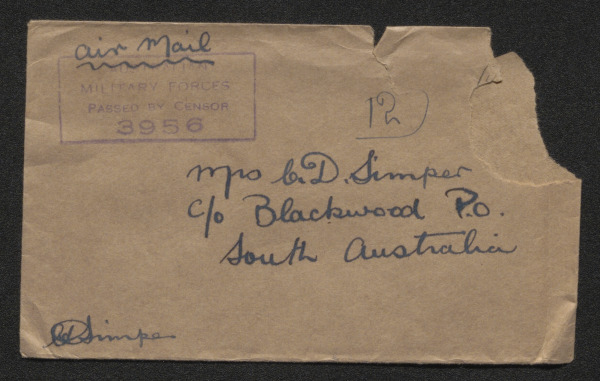 air Mail
MILITARY FORCES
PASSED BY CENSOR
3956
12
Mrs C.D. Simper
c/o Blackwood P.O.
South Australia
CD Simper